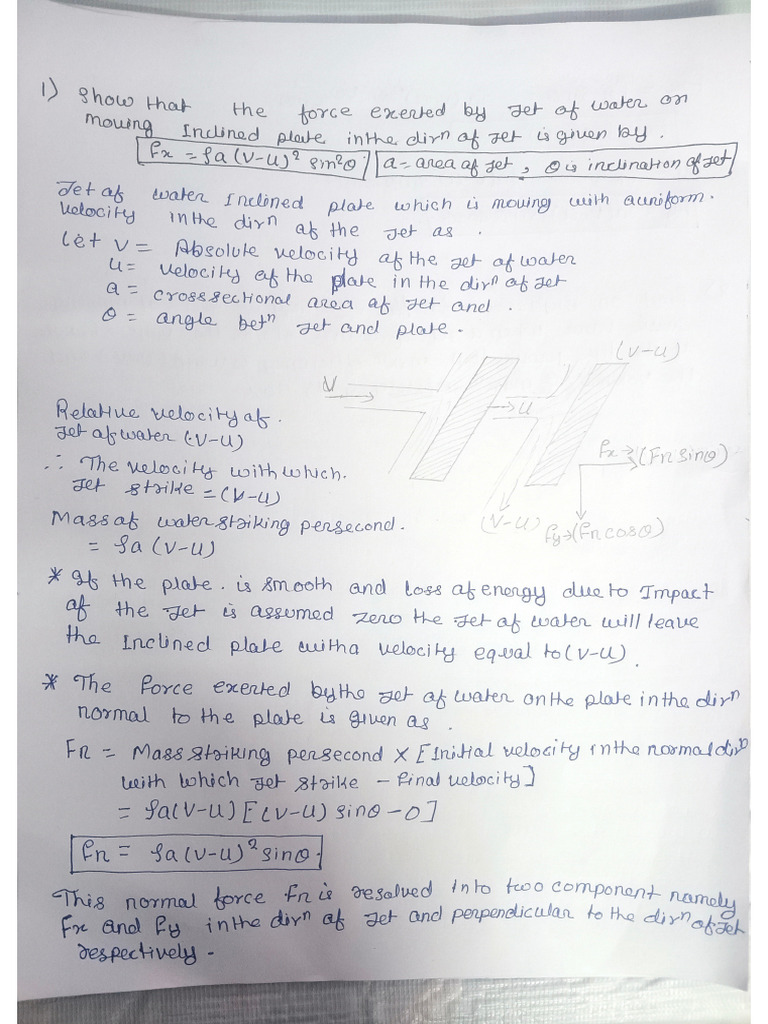 1) Show that the force exerted by Jet of water on
moving Inclined plate in the dirⁿ of Jet is given by.
Fx = ρa (V-U)² sin²θ a = area of Jet, θ is inclination of Jet
Jet of water Inclined plate which is moving with a uniform.
velocity in the dirⁿ of the Jet as.
Let V = Absolute velocity of the Jet of water
U = velocity of the plate in the dirⁿ of Jet
a = cross sectional area of Jet and.
θ = angle betⁿ Jet and plate.
V
U
(V-U)
Fx→(Fn sinθ)
(V-U)
Fy→(Fn cosθ)
Relative velocity of.
Jet of water (V-U)
∴ The velocity with which.
Jet strike = (V-U)
Mass of water striking per second.
= ρa (V-U)
* If the plate. is smooth and loss of energy due to Impact
of the Jet is assumed zero the Jet of water will leave
the Inclined plate with a velocity equal to (V-U).
* The force exerted by the Jet of water on the plate in the dirⁿ
normal to the plate is given as.
Fn = Mass striking per second × [Initial velocity in the normal dirⁿ
with which Jet strike - final velocity]
= ρa(V-U) [(V-U) sinθ - 0]
Fn = ρa (V-U)² sinθ.
This normal force Fn is resolved into two component namely
Fx and Fy in the dirⁿ of Jet and perpendicular to the dirⁿ of Jet
respectively.